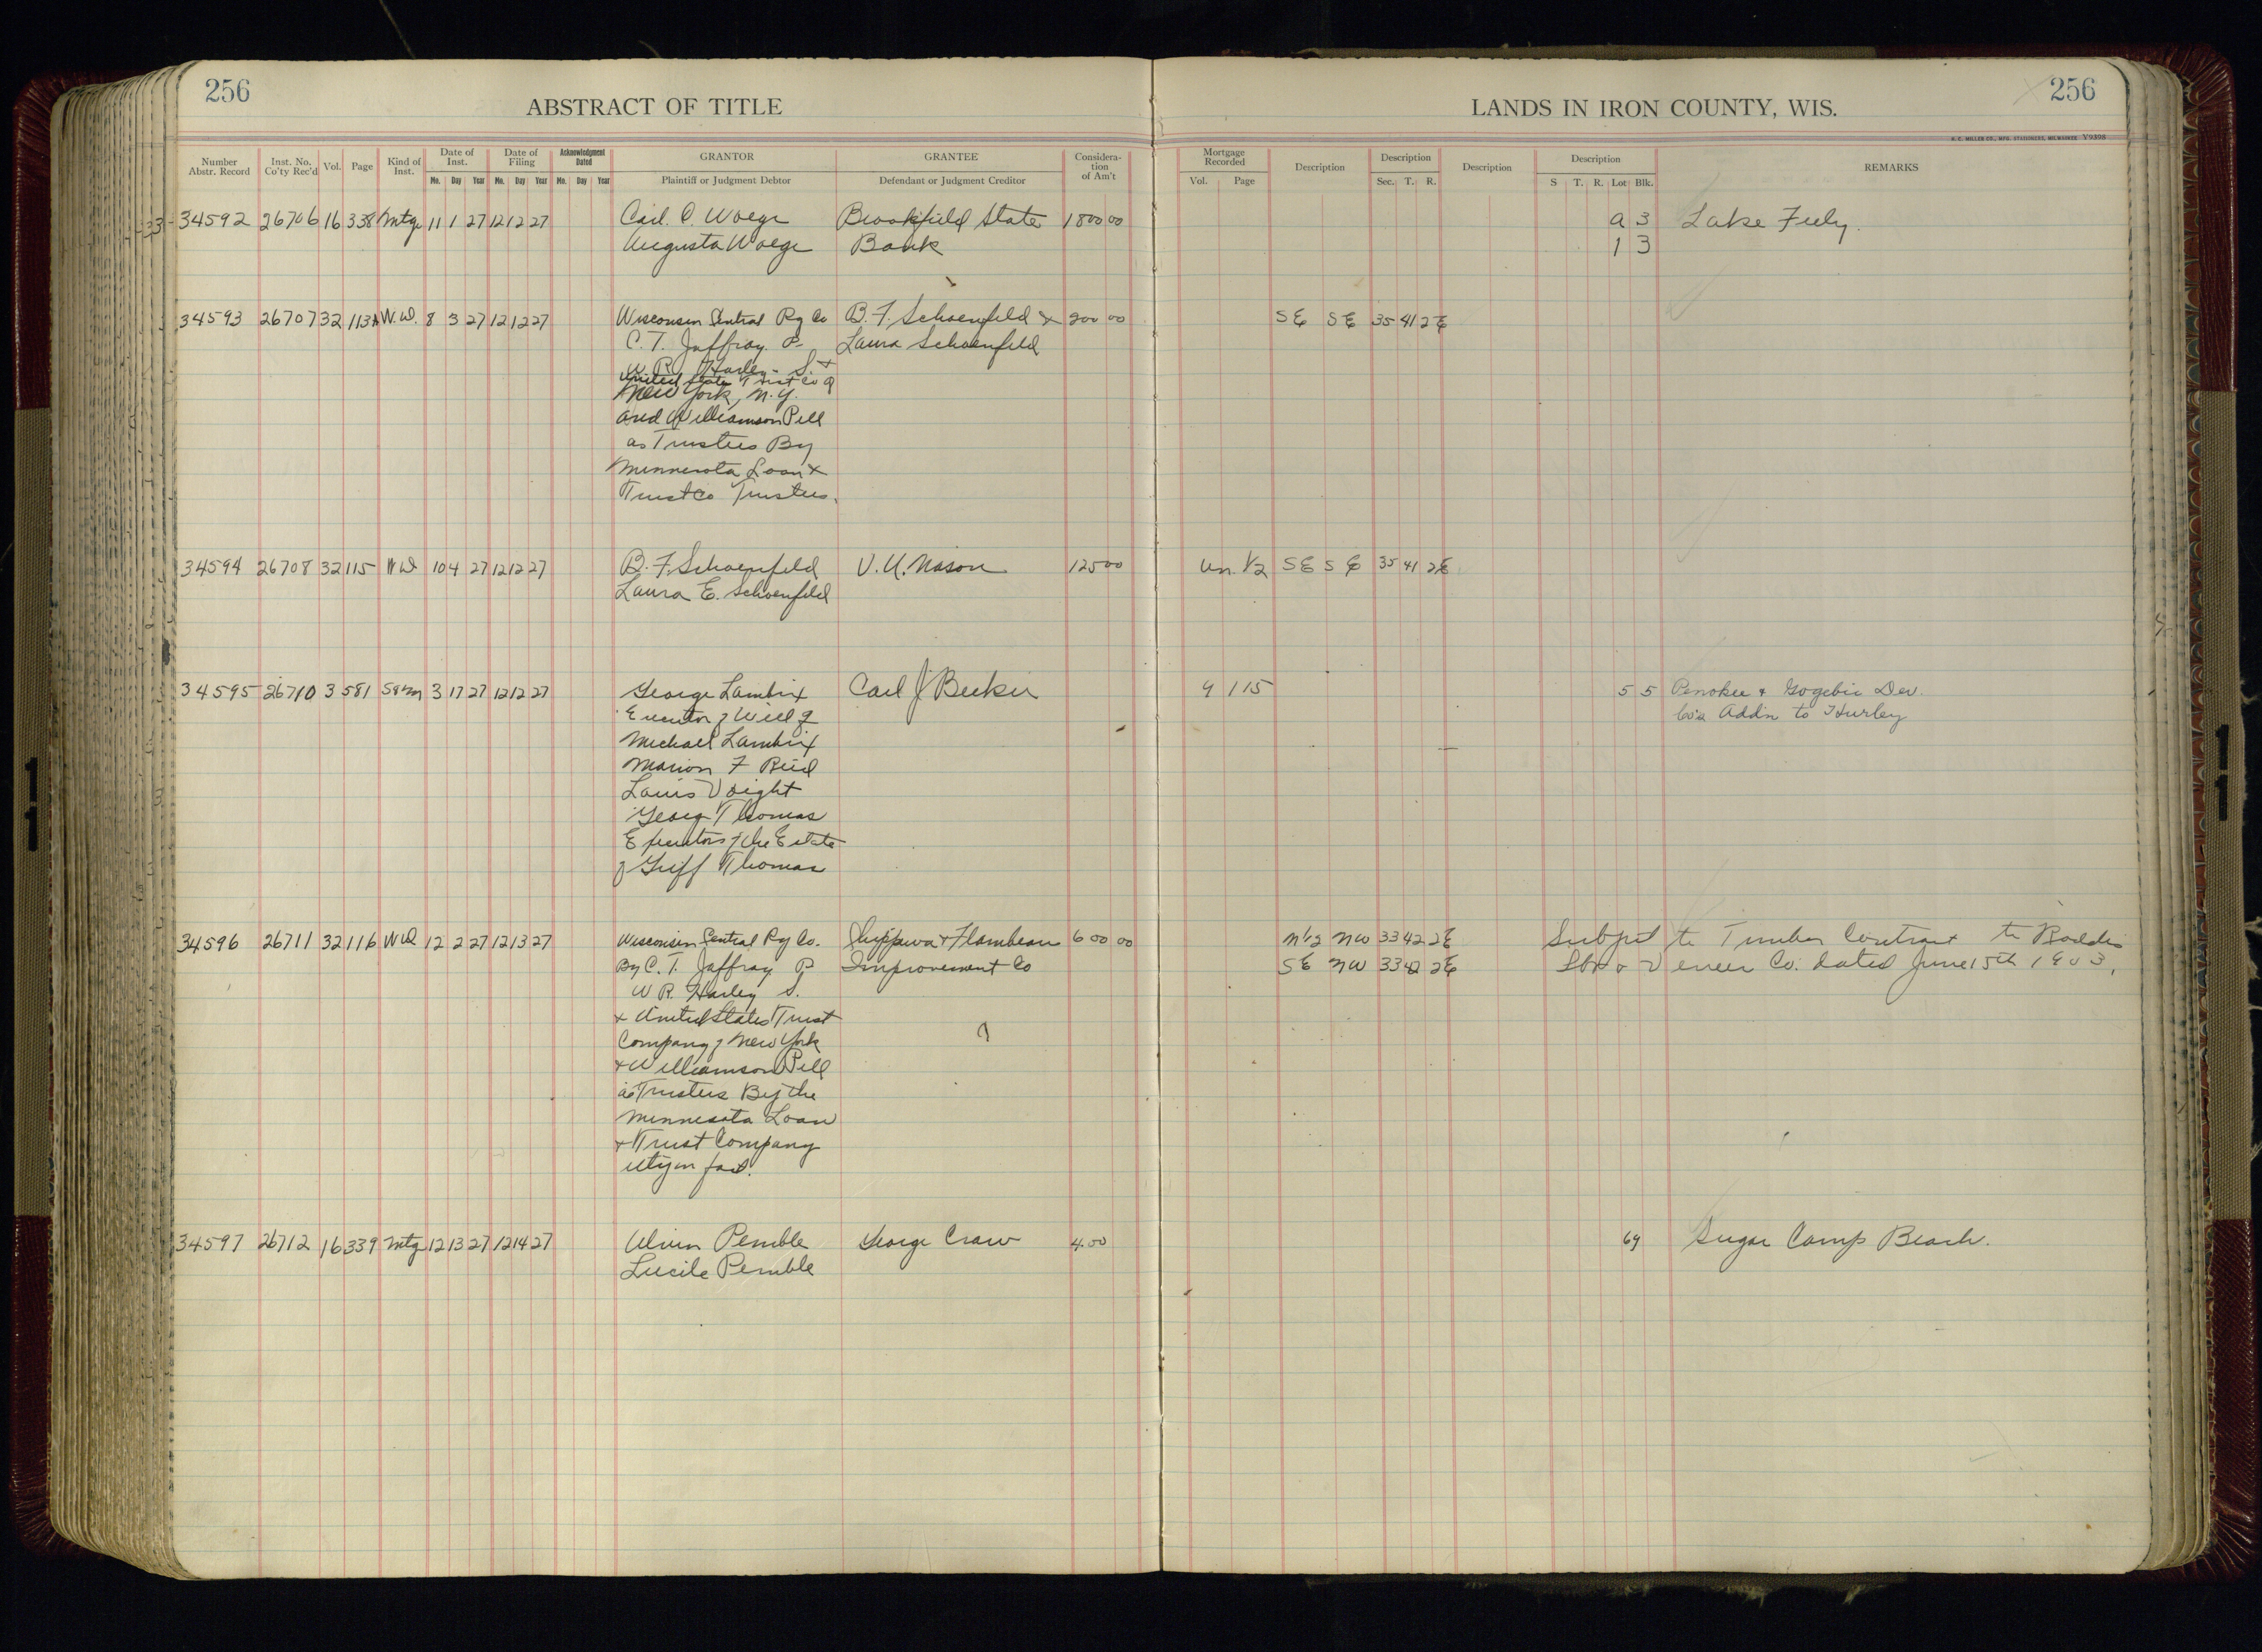 256
256
ABSTRACT OF TITLE
LANDS IN IRON COUNTY, WIS.
H. C. MILLER CO., MFG. STATIONERS, MILWAUKEE Y9398
Number Abstr. Record
Inst. No. Co'ty Rec'd
Vol.
Page
Kind of Inst.
Date of Inst.
Mo. Day Year
Date of Filing
Mo. Day Year
Acknowledgment Dated
Mo. Day Year
GRANTOR
Plaintiff or Judgment Debtor
GRANTEE
Defendant or Judgment Creditor
Considera-tion of Am't
Mortgage Recorded
Vol. Page
Description
Description
Sec. T. R.
Description
Description
S T. R. Lot Blk.
REMARKS
34592 26706 16 338 Mtge 11 1 27 12 12 27 Carl C. Woege Brookfield State 1800 00 a 3 Lake
Augusta Woege Bank 1 3
34593 26707 32 113 W.D. 8 3 27 12 12 27 Wisconsin Central Ry Co B. F. Schoenfeld & 200 00 SE SE 35 41 2E
C. T. Jaffray P. Laura Schoenfeld
W. R. Harley S. +
United State Trust Co of
New York, N.Y.
and Williamson Pell
as Trustees By
Minnesota Loan +
Trust Co Trustees.
34594 26708 32 115 WD 10 4 27 12 12 27 B. F. Schoenfeld V. U. Nason 125 00 Un. 1/2 SE SE 35 41 2E
Laura E. Schoenfeld
34595 26710 3 581 3 17 27 12 12 27 George Lambrix Carl J Becker 9 115 5 5 Penokee + Gogebic Dev.
Executor of Will of Co's Addn to Hurley
Michael Lambrix
Marion F Reid
Louis Voight
George Thomas
Executors of the Estate
of Griff Thomas
34596 26711 32 116 WD 12 2 27 12 13 27 Wisconsin Central Ry Co. Chippewa + Flambeau 600 00 N1/2 NW 33 42 2E Subject to Timber Contract to Roddis
By C. T. Jaffray P Improvement Co SE NW 33 42 2E Lbr & Veneer Co. dated June 15th 1903.
W R. Harley S.
+ United States Trust
Company of New York
+ Williamson Pell
as Trustees By the
Minnesota Loan
+ Trust Company
atty in fact.
34597 26712 16 339 Mtg 12 13 27 12 14 27 Pemble George Craw 4.00 69 Sugar Camp Beach.
Lucile Pemble